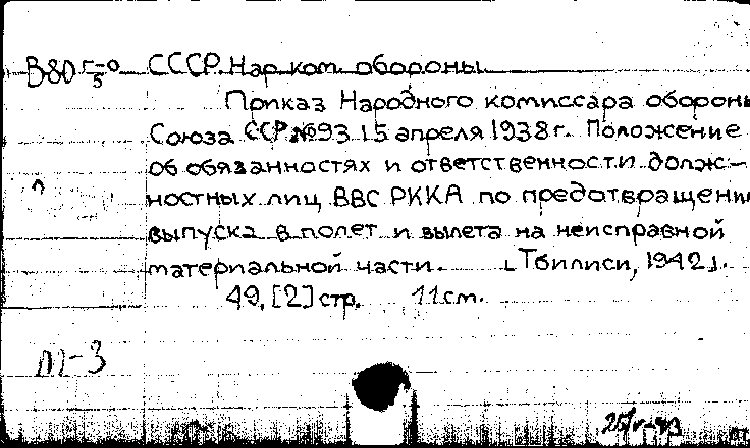 В80 г-0/5 СССР. Нар. ком. обороны.
Приказ Народного комиссара обороны
Союза ССР №93 15 апреля 1938 г. Положение
об обязанностях и ответственности долж-
ностных лиц ВВС РККА по предотвращени
выпуска в полет и вылета на неисправной
материальной части. [Тбилиси, 1942].
49, [2] стр. 11 см.
М-3